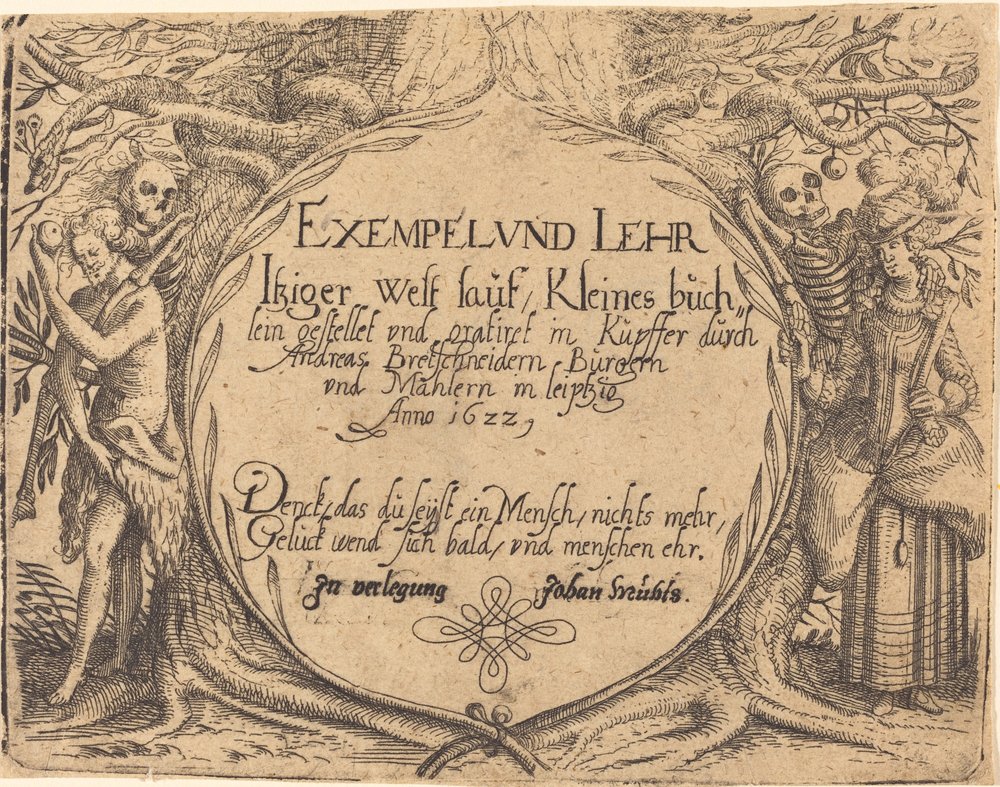 EXEMPEL VND LEHR
Itziger welt lauf, Kleines buch„
lein gestellet vnd gratiret in Kupffer durch
Andreas Bretschneidern Burgern
vnd Mahlern in leiptzig
Anno 1622,
Denck, das du seyst ein Mensch, nichts mehr,
Gelück wend sich bald, vnd menschen ehr.
In verlegung Johan